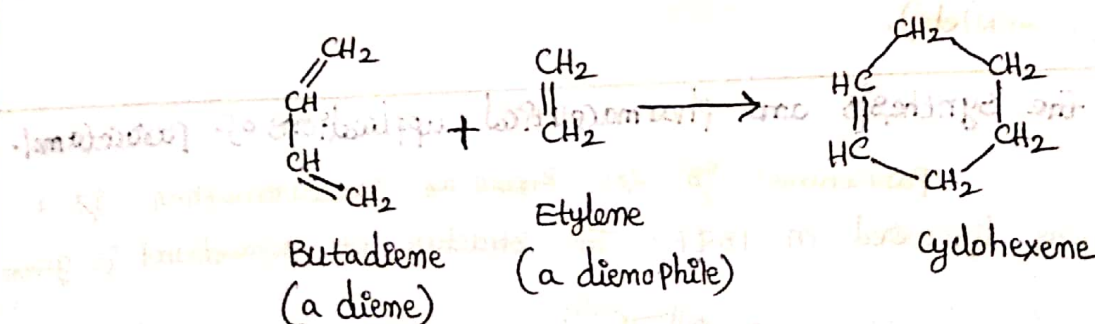 CH2
CH
CH
CH2
+
CH2
CH2
CH2
HC
CH2
HC
CH2
CH2
Butadiene
(a diene)
Etylene
(a dienophile)
Cyclohexene